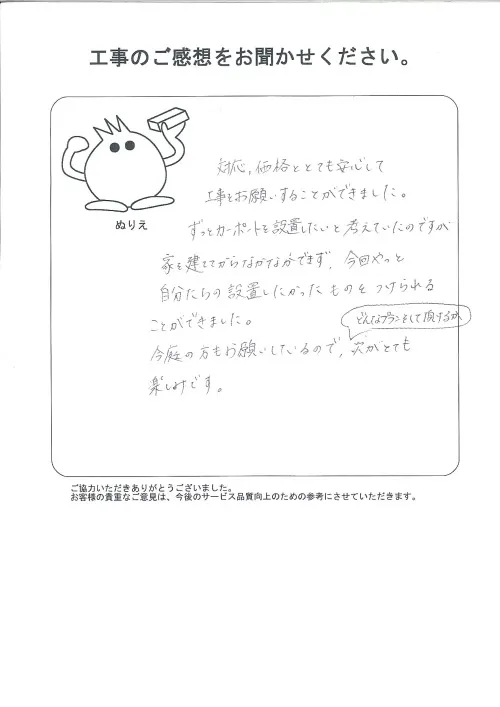 工事のご感想をお聞かせください。
ぬりえ
対応,価格ととても安心して
工事をお願いすることができました。
ずっとカーポートを設置したいと考えていたのですが
家を建ててからなかなかできず,今回やっと
自分たちの設置したかったものをつけられる
ことができました。
どんなプランをして頂けるか
今庭の方もお願いしているので,次がとても
楽しみです。
ご協力いただきありがとうございました。
お客様の貴重なご意見は、今後のサービス品質向上のための参考にさせていただきます。